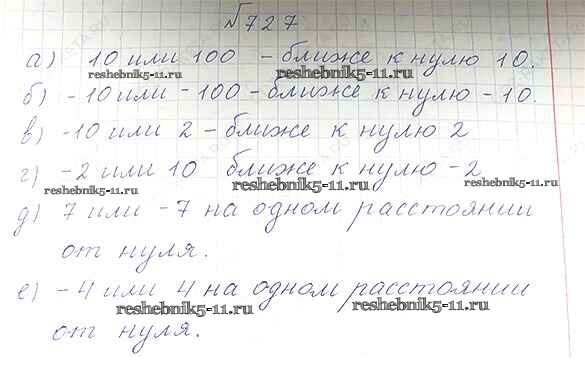 №727
а) 10 или 100 - ближе к нулю 10.
reshebnik5-11.ru reshebnik5-11.ru
б) -10 или -100 - ближе к нулю -10.
в) -10 или 2 - ближе к нулю 2
г) -2 или 10 ближе к нулю -2
reshebnik5-11.ru reshebnik5-11.ru reshebnik5-11.ru
д) 7 или -7 на одном расстоянии
от нуля.
е) -4 или 4 на одном расстоянии
reshebnik5-11.ru reshebnik5-11.ru
от нуля.